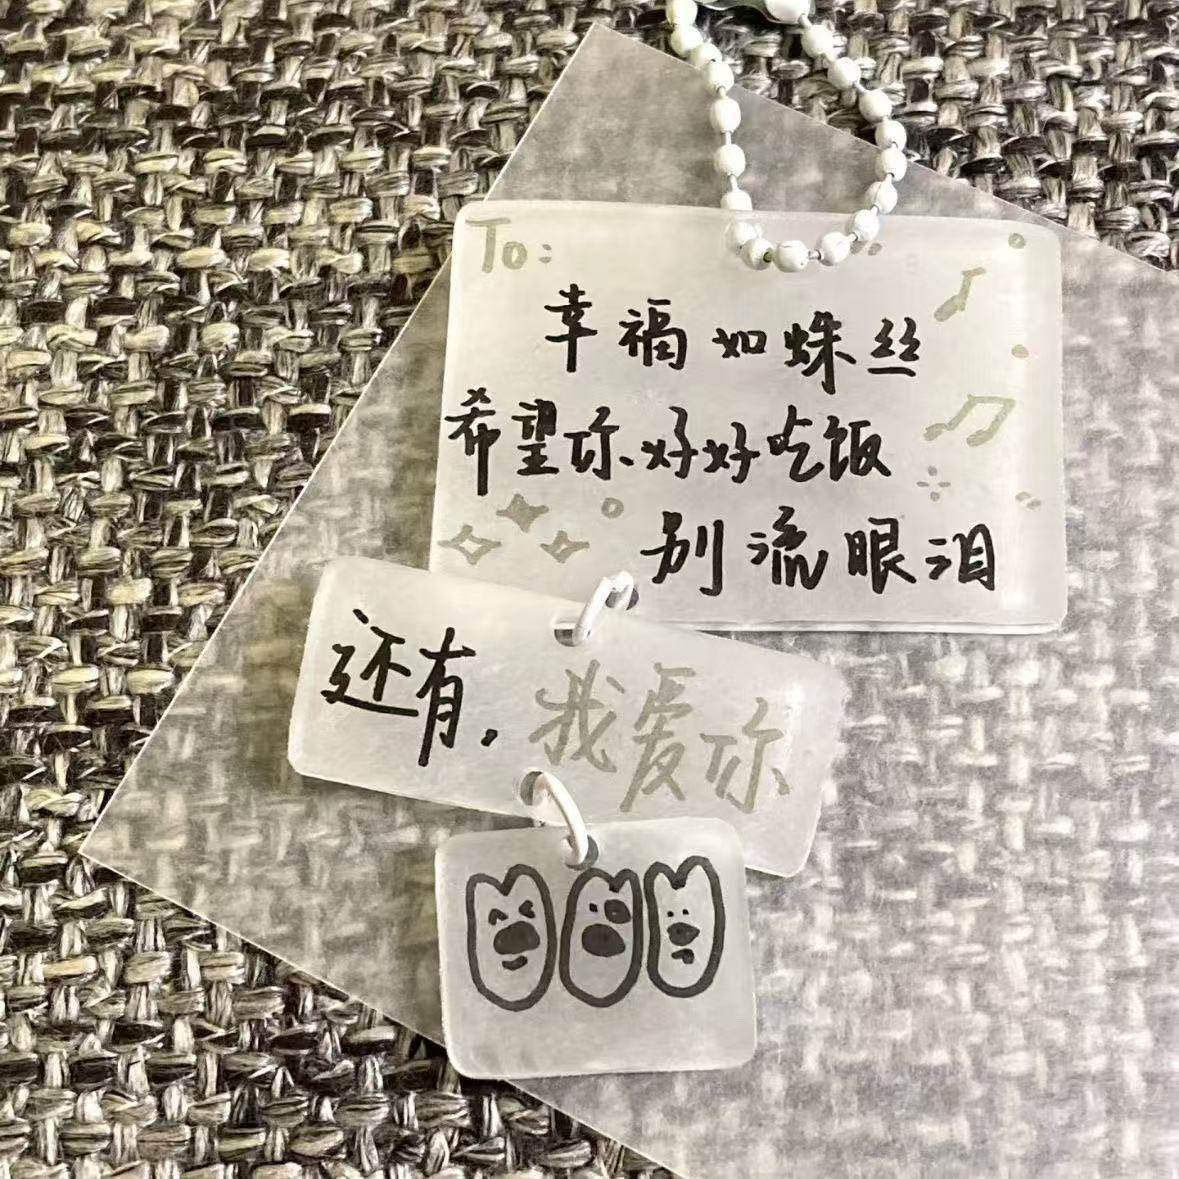 To:
幸福如蛛丝
希望你好好吃饭
别流眼泪
还有,我爱你